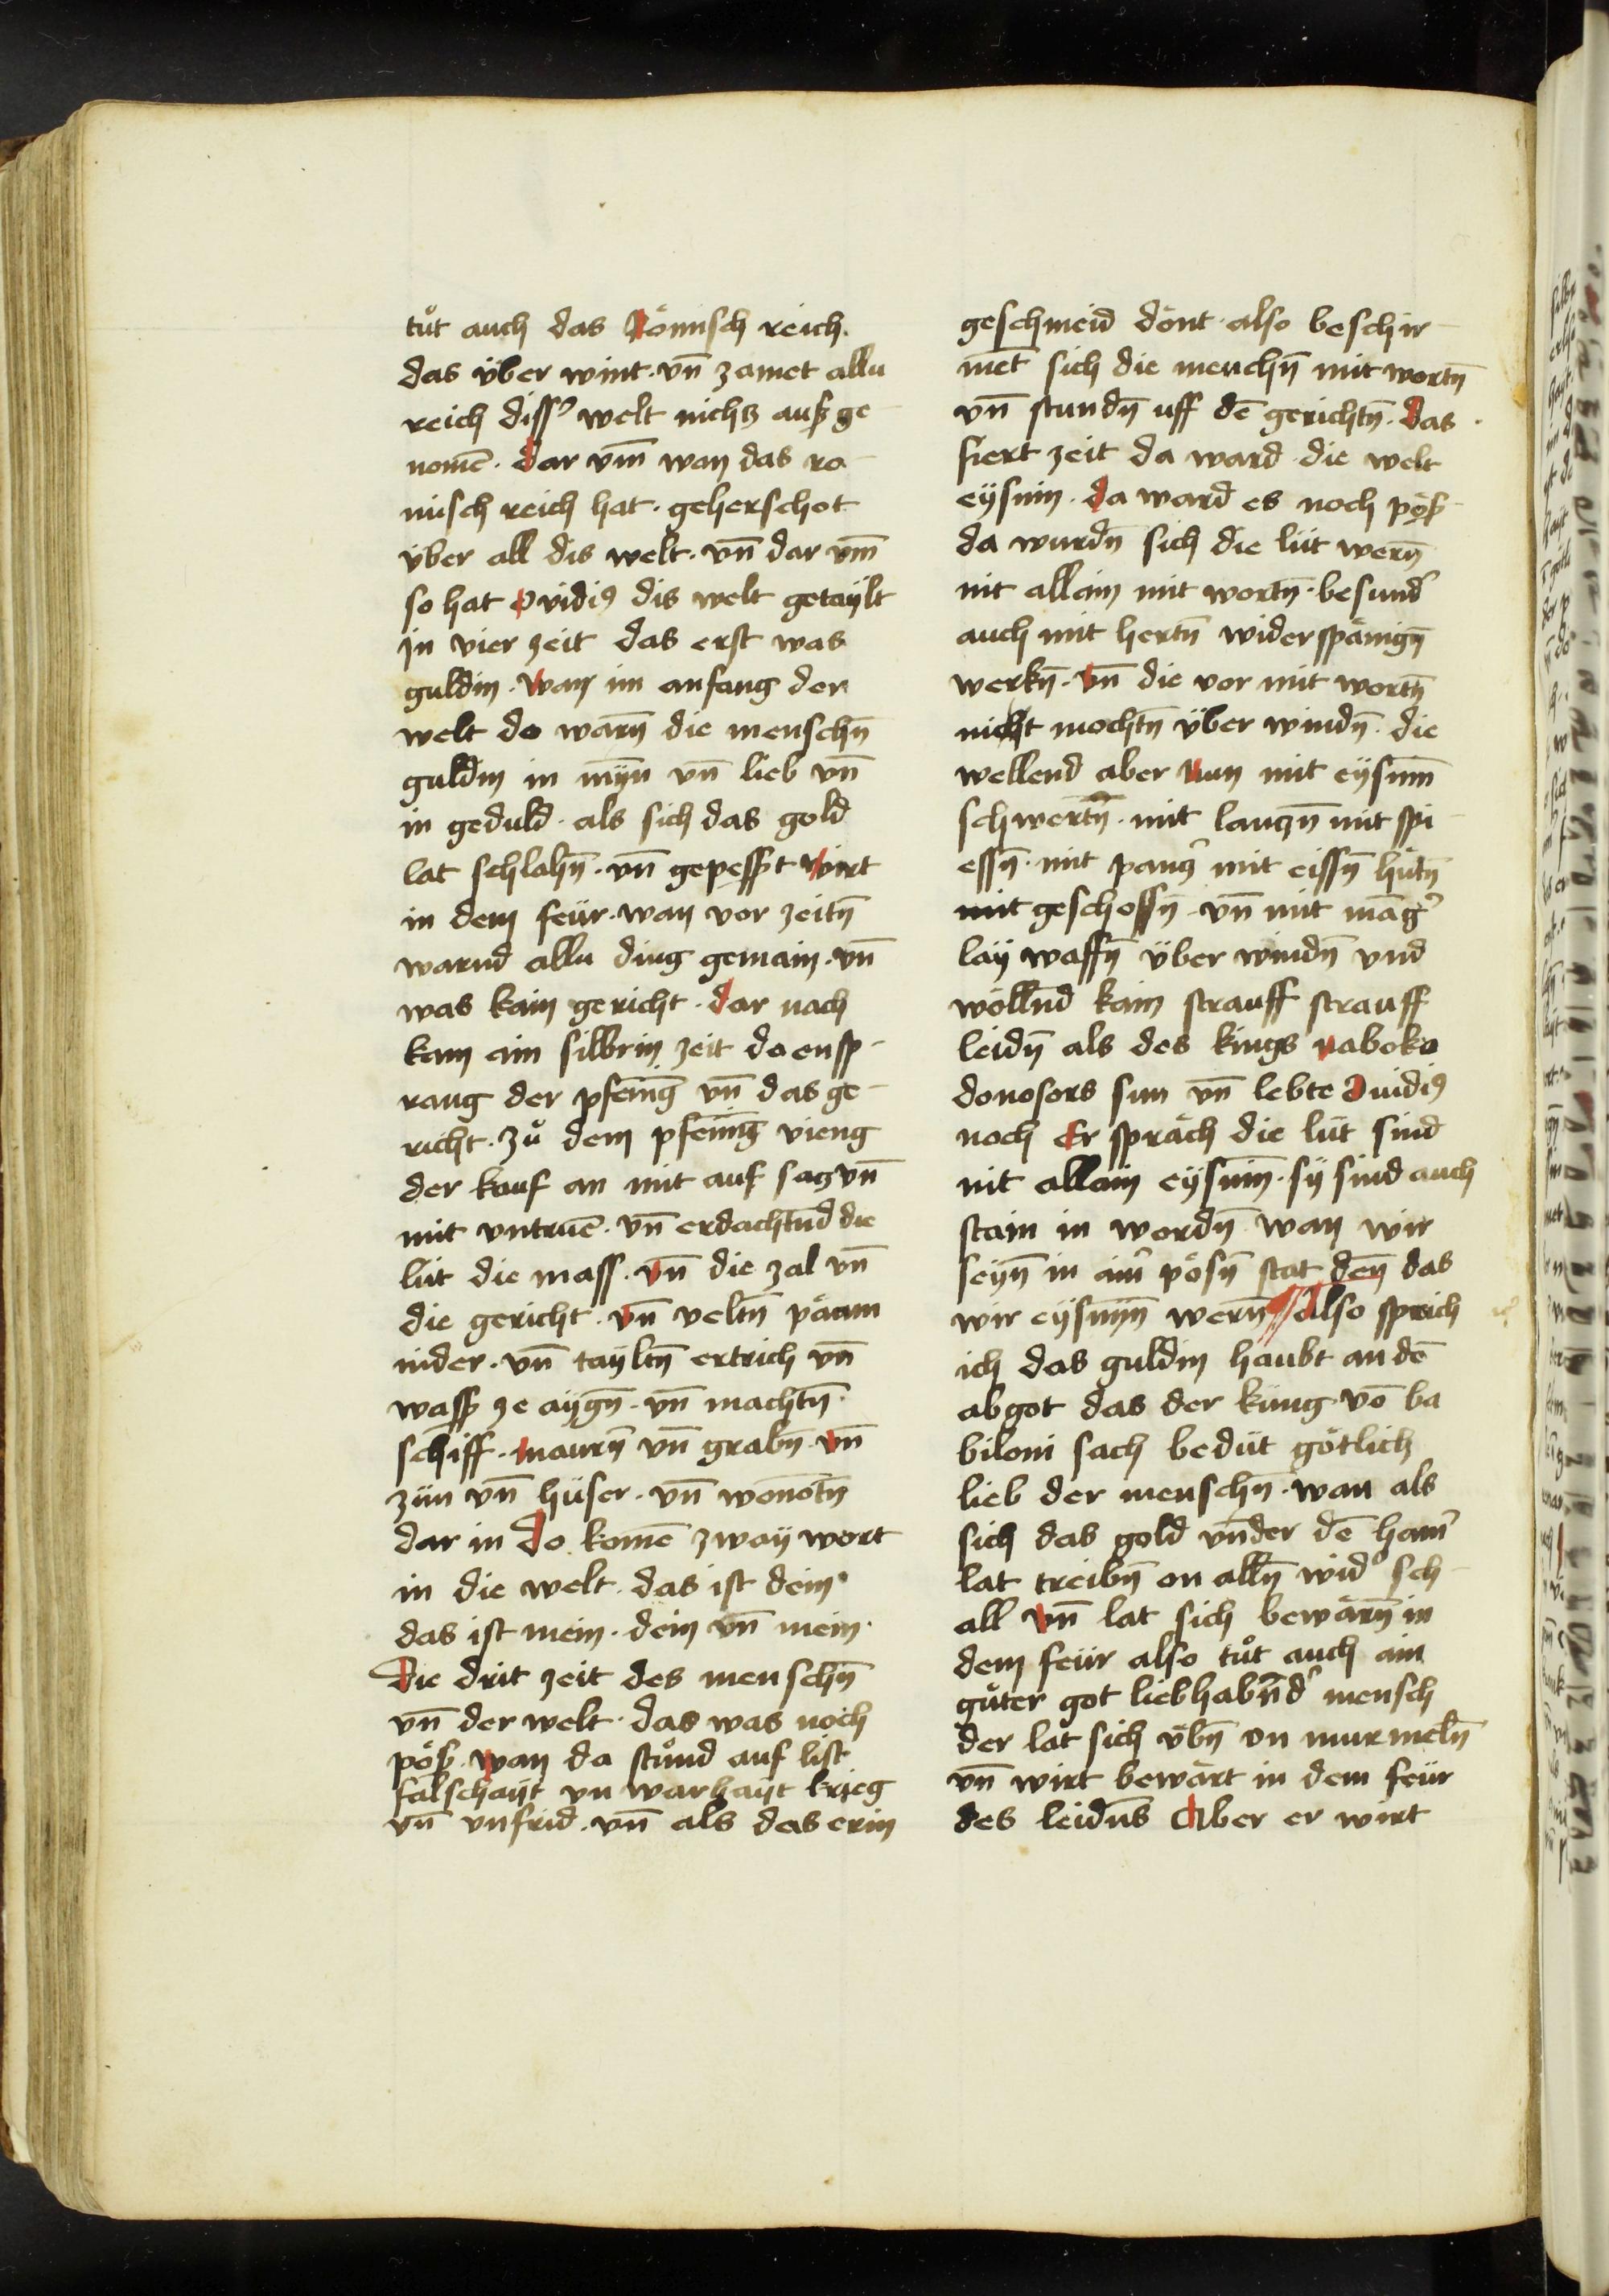 tůt auch das Römisch reich.
das über wint. vn̄ zamet allu
reich diss' welt nichtz aufz ge
nomē. dar vm̄ wan das ro-
misch reich hat. geherschot
über all dis welt. vn̄ dar vm̄
so hat ovidiꝰ dis welt getaÿlt
jn vier zeit das erst was
guldin. wan im anfang der
welt do warn̄ die menschn̄
guldin in mȳn vn̄ lieb vn̄
in geduld. als sich das gold
lat schlahn̄. vn̄ gepesszt wirt
in dem feür. wan vor zeitn̄
warnd allu ding gemain. vn̄
was kain gericht. dar nach
kam ain silbrin zeit do ensp-
rang der pfenīg vn̄ das ge-
richt. zů dem pfenīg vieng
der kauf an mit auf satz vn̄
mit vntruē. vn̄ erdachtnd die
lüt die mass. vn̄ die zal vn̄
die gericht. vn̄ veltn̄ päum
nider. vn̄ taÿltn̄ ertrich vn̄
wassz ze aÿgn̄. vn̄ machtn̄.
schiff. maurn̄ vn̄ grabn̄. vn̄
zün vn̄ hüser. vn̄ wonotn̄
dar in do komē zwaÿ wort
in die welt. das ist dein.
das ist mein. dein vn̄ mein.
Die drit zeit des menschn̄
vn̄ der welt. das was noch
pösz. wan da stůnd auf list
falschaÿt vn warhaÿt krieg
vn̄ vnfrid. vn̄ als das erin
geschmeid dönt. also beschir-
met sich die menchn̄ mit wortn̄
vn̄ stundn̄ uff dē gerichtn̄. das.
fiert zeit da ward die welt
eÿsnin. da ward es noch pösz
da wurdn̄ sich die lüt wern̄
nit allain mit wortn̄. besund'
auch mit hertn̄ widerspänign̄
werkn̄. vn̄ die vor mit wortn̄
nicht mochtn̄ über windn̄. die
wellend aber nun mit eÿsnin̄
schwertn̄. mit lanczn̄ mit spi
essn̄. mit pancz' mit eissn̄ hütn̄
mit geschossn̄. vn̄ mit māg'
laÿ waffn̄ über windn̄ vnd
wölln̄d kain strauff strauff
leidn̄ als des kings naboko
donosors sun vn̄ lebte Ouidiꝰ
noch Er spräch die lüt sind
nit allain eÿsnin̄. sÿ sind auch
stain in wordn̄ wan wir
seÿn̄ in aim' pösn̄ stat den̄ das
wir eÿsnȳn wern̄ ¶ Also sprich
ich das guldin haubt an dē
abgot das der küng vō ba
biloni sach bedüt götlich
lieb der menschn̄. wan als
sich das gold vn̄der dē ham'
lat treibn̄ on alln̄ wid' sch-
all vn̄ lat sich bewärn̄ in
dem feür also tůt auch ain
gůter got liebhabn̄d' mensch
der lat sich übn̄ on murmeln̄
vn̄ wirt bewärt in dem feür
des leidn̄s Aber er wirt